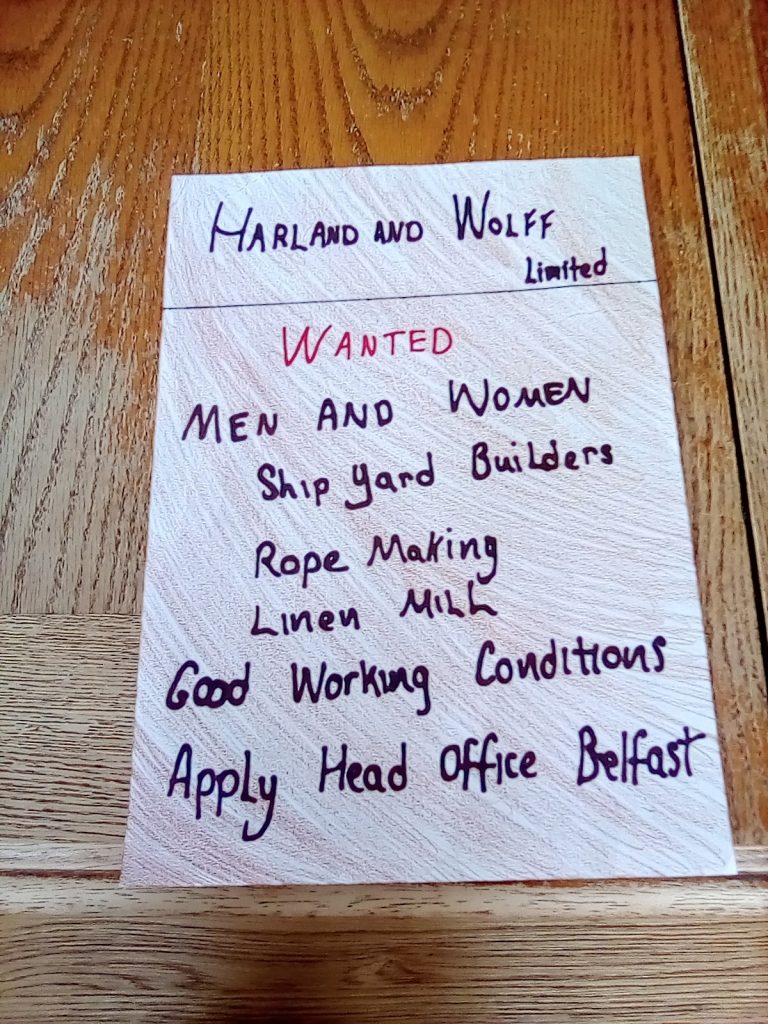 HARLAND AND WOLFF
Limited
WANTED
MEN AND WOMEN
Ship Yard Builders
Rope Making
Linen MILL
Good Working Conditions
Apply Head Office Belfast